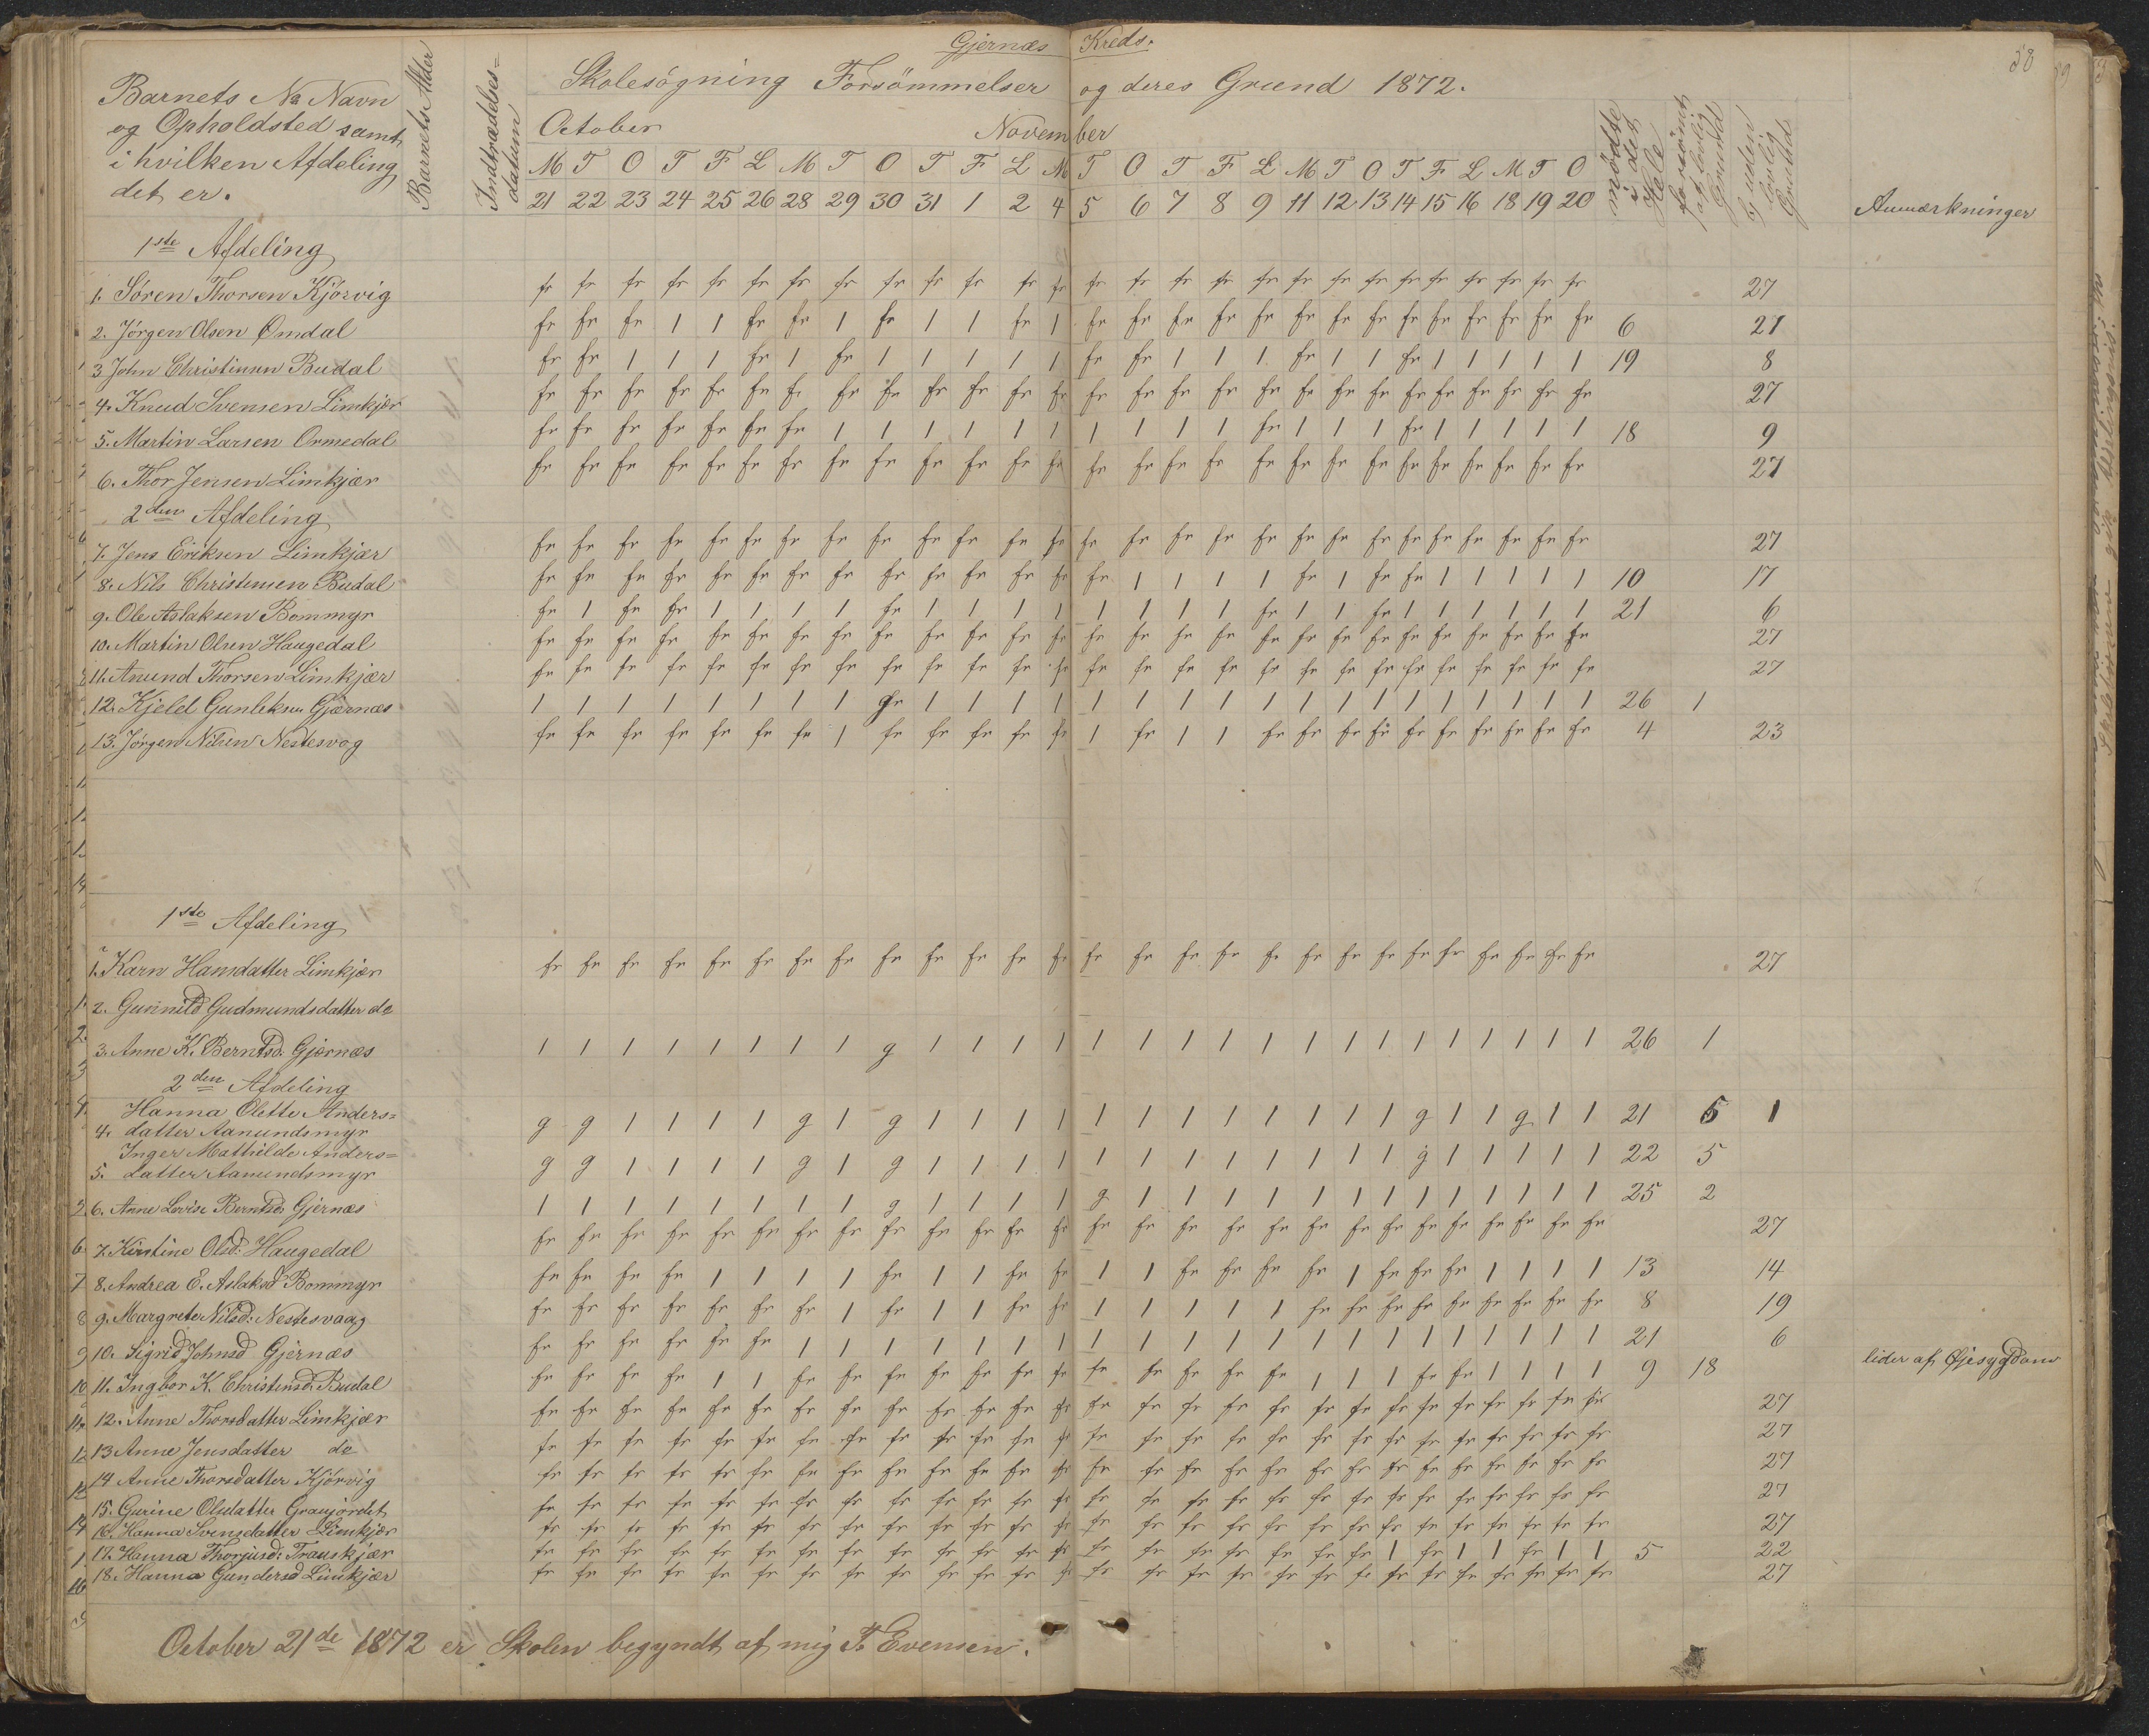 Gjernæs Kreds.
58
Barnets No Navn
og Opholdsted samt
i hvilken Afdeling
det er.
Barnets Alder
Indtrædelses-
datum
Skolesøgning Forsømmelser og deres Grund 1872.
October November
M T O T F L M T O T F L M T O T F L M T O T F L M T O
21 22 23 24 25 26 28 29 30 31 1 2 4 5 6 7 8 9 11 12 13 14 15 16 18 19 20
mødte
i det
Hele
forsömt
af lovlig
Grund
uden
lovlig
Grund
Anmærkninger
1ste Afdeling
1. Søren Thorsen Kjörvig fr fr fr fr fr fr fr fr fr fr fr fr fr fr fr fr fr fr fr fr fr fr fr fr fr fr fr 27
2. Jörgen Olsen Omdal fr fr fr 1 1 fr fr 1 fr 1 1 fr 1 fr fr fr fr fr fr fr fr fr fr fr fr fr fr 6 21
3 John Christensen Budal fr fr 1 1 1 fr 1 fr 1 1 1 1 1 fr fr 1 1 1 fr 1 1 fr 1 1 1 1 1 19 8
4. Knud Svensen Limkjær fr fr fr fr fr fr fr fr fr fr fr fr fr fr fr fr fr fr fr fr fr fr fr fr fr fr fr 27
5. Martin Larsen Ormedal fr fr fr fr fr fr fr 1 1 1 1 1 1 1 1 1 1 fr 1 1 1 fr 1 1 1 1 1 18 9
6. Thor Jensen Limkjær fr fr fr fr fr fr fr fr fr fr fr fr fr fr fr fr fr fr fr fr fr fr fr fr fr fr fr 27
2den Afdeling
7. Jens Eriksen Limkjær fr fr fr fr fr fr fr fr fr fr fr fr fr fr fr fr fr fr fr fr fr fr fr fr fr fr fr 27
8. Nils Christensen Budal fr fr fr fr fr fr fr fr fr fr fr fr fr fr 1 1 1 1 fr 1 fr fr 1 1 1 1 1 10 17
9. Ole Aslaksen Bommyr fr 1 fr fr 1 1 1 1 fr 1 1 1 1 1 1 1 1 fr 1 1 fr 1 1 1 1 1 1 21 6
10. Martin Olsen Haugedal fr fr fr fr fr fr fr fr fr fr fr fr fr fr fr fr fr fr fr fr fr fr fr fr fr fr fr 27
11. Anund Thorsen Limkjær fr fr fr fr fr fr fr fr fr fr fr fr fr fr fr fr fr fr fr fr fr fr fr fr fr fr fr 27
12. Kjeld Gunleksn Gjærnæs 1 1 1 1 1 1 1 1 gr 1 1 1 1 1 1 1 1 1 1 1 1 1 1 1 1 1 1 26 1
13. Jörgen Nilsen Nestesvog fr fr fr fr fr fr fr 1 fr fr fr fr fr 1 fr 1 1 fr fr fr fr fr fr fr fr fr fr 4 23
1ste Afdeling
1. Karn Hansdatter Limkjær fr fr fr fr fr fr fr fr fr fr fr fr fr fr fr fr fr fr fr fr fr fr fr fr fr fr fr 27
2. Gunnild Gudmundsdatter do
3. Anne K. Berntsd: Gjærnæs 1 1 1 1 1 1 1 1 g 1 1 1 1 1 1 1 1 1 1 1 1 1 1 1 1 1 1 26 1
2den Afdeling
Hanna Olette Anders=
4. datter Aamundsmyr g g 1 1 1 1 g 1 g 1 1 1 1 1 1 1 1 1 1 1 1 g 1 1 g 1 1 21 5 1
Inger Mathilde Anders=
5. datter Aamundsmyr g g 1 1 1 1 g 1 g 1 1 1 1 1 1 1 1 1 1 1 1 g 1 1 1 1 1 22 5
6. Anne Lovise Berntsd: Gjernæs 1 1 1 1 1 1 1 1 g 1 1 1 1 g 1 1 1 1 1 1 1 1 1 1 1 1 1 25 2
7. Kirstine Olsd: Haugedal fr fr fr fr fr fr fr fr fr fr fr fr fr fr fr fr fr fr fr fr fr fr fr fr fr fr fr 27
8. Andrea E. Aslaksd Bommyr fr fr fr fr 1 1 1 1 fr 1 1 fr fr 1 1 fr fr fr fr 1 fr fr fr 1 1 1 1 13 14
9. Margrete Nilsd: Nestesvaag fr fr fr fr fr fr fr 1 fr 1 1 fr fr 1 1 1 1 1 fr fr fr fr fr fr fr fr fr 8 19
10. Sigrid Johnsd Gjernæs fr fr fr fr fr fr 1 1 1 1 1 1 1 1 1 1 1 1 1 1 1 1 1 1 1 1 1 21 6
11. Ingbor K. Christensd: Budal fr fr fr fr 1 1 fr fr fr fr fr fr fr fr fr fr fr fr 1 1 1 fr fr 1 1 1 1 9 18 lider af Øjesygdom
12. Anne Thorsdatter Limkjær fr fr fr fr fr fr fr fr fr fr fr fr fr fr fr fr fr fr fr fr fr fr fr fr fr fr fr 27
13 Anne Jensdatter do fr fr fr fr fr fr fr fr fr fr fr fr fr fr fr fr fr fr fr fr fr fr fr fr fr fr fr 27
14 Anne Thorsdatter Kjörvig fr fr fr fr fr fr fr fr fr fr fr fr fr fr fr fr fr fr fr fr fr fr fr fr fr fr fr 27
15. Gurine Olsdatter Graujordet fr fr fr fr fr fr fr fr fr fr fr fr fr fr fr fr fr fr fr fr fr fr fr fr fr fr fr 27
16. Hanna Svensdatter Limkjær fr fr fr fr fr fr fr fr fr fr fr fr fr fr fr fr fr fr fr fr fr fr fr fr fr fr fr 27
17. Hanna Thorjusd: Trauskjær fr fr fr fr fr fr fr fr fr fr fr fr fr fr fr fr fr fr fr fr fr 1 fr 1 1 fr 1 1 5 22
18. Hanna Gundersd Limkjær fr fr fr fr fr fr fr fr fr fr fr fr fr fr fr fr fr fr fr fr fr fr fr fr fr fr fr 27
October 21de 1872 er Skolen begyndt af mig T. Evensen.